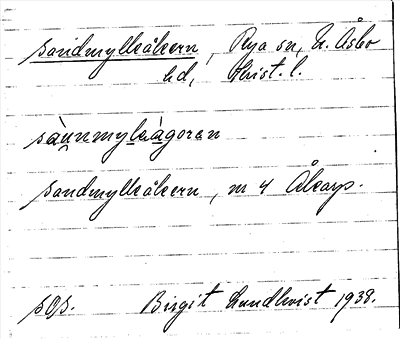 Sandmylleåkern, Rya sn, N. Åsbo
hd, Krist. l.
sàu̯nmylaàgorən
Sandmylleåkern, m 4 Åkarp.
sOs. Birgit Lundkvist 1938.